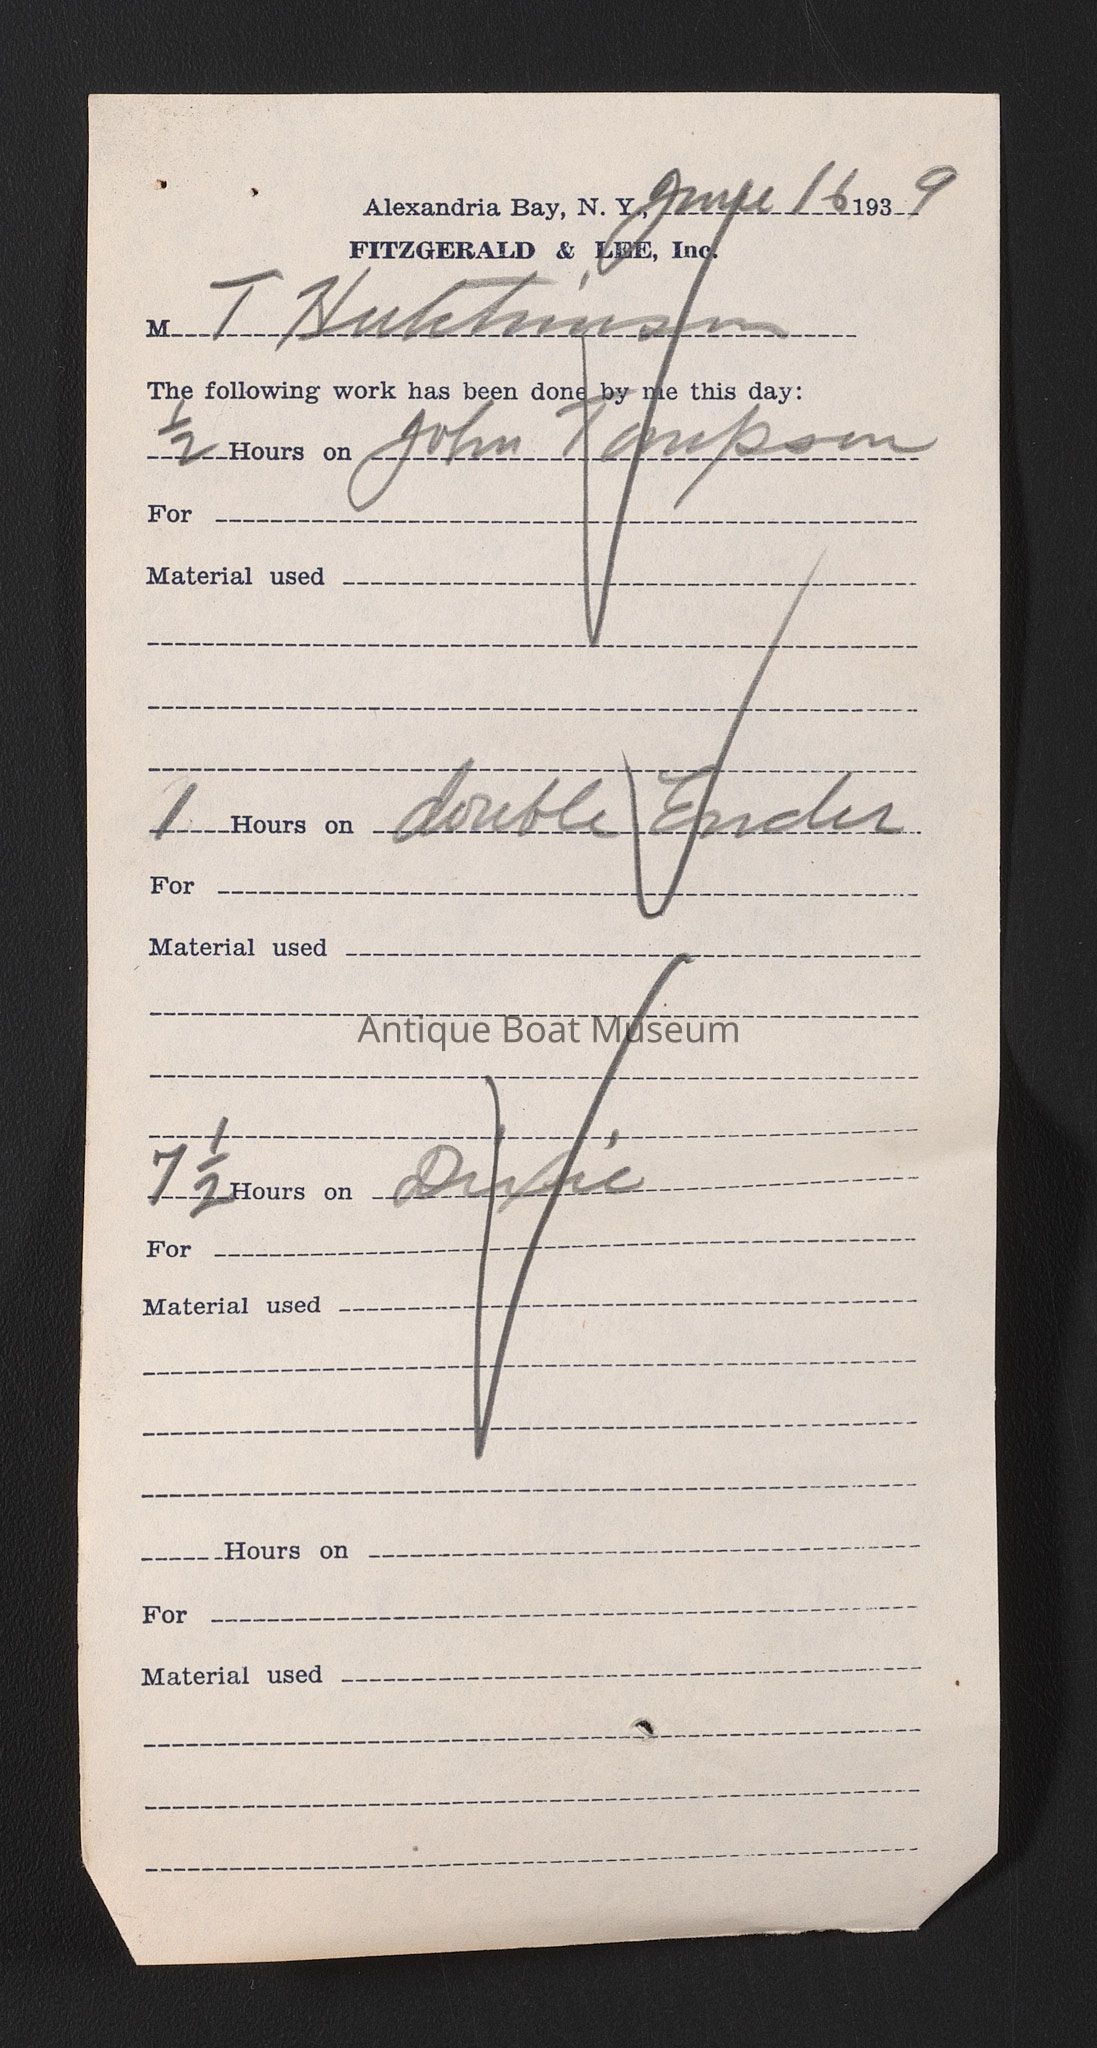 Alexandria Bay, N. Y., June 16 193 9
FITZGERALD & LEE, Inc.
M T Hutchinson
The following work has been done by me this day:
1/2 Hours on John Tompson
For
Material used
1 Hours on double Ender
For
Material used
Antique Boat Museum
7 1/2 Hours on Dixie
For
Material used
Hours on
For
Material used